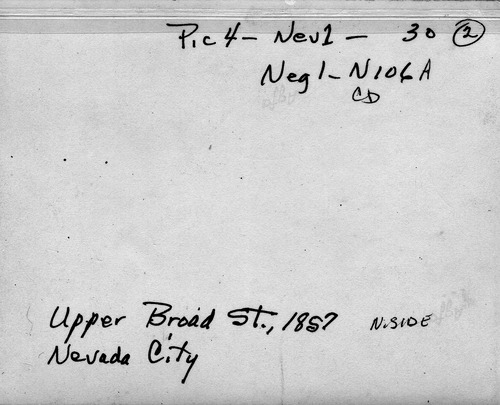 Pic 4 - Nev 1 - 30 2
Neg 1 - N106A
CD
Upper Broad St., 1857 N. SIDE
Nevada City